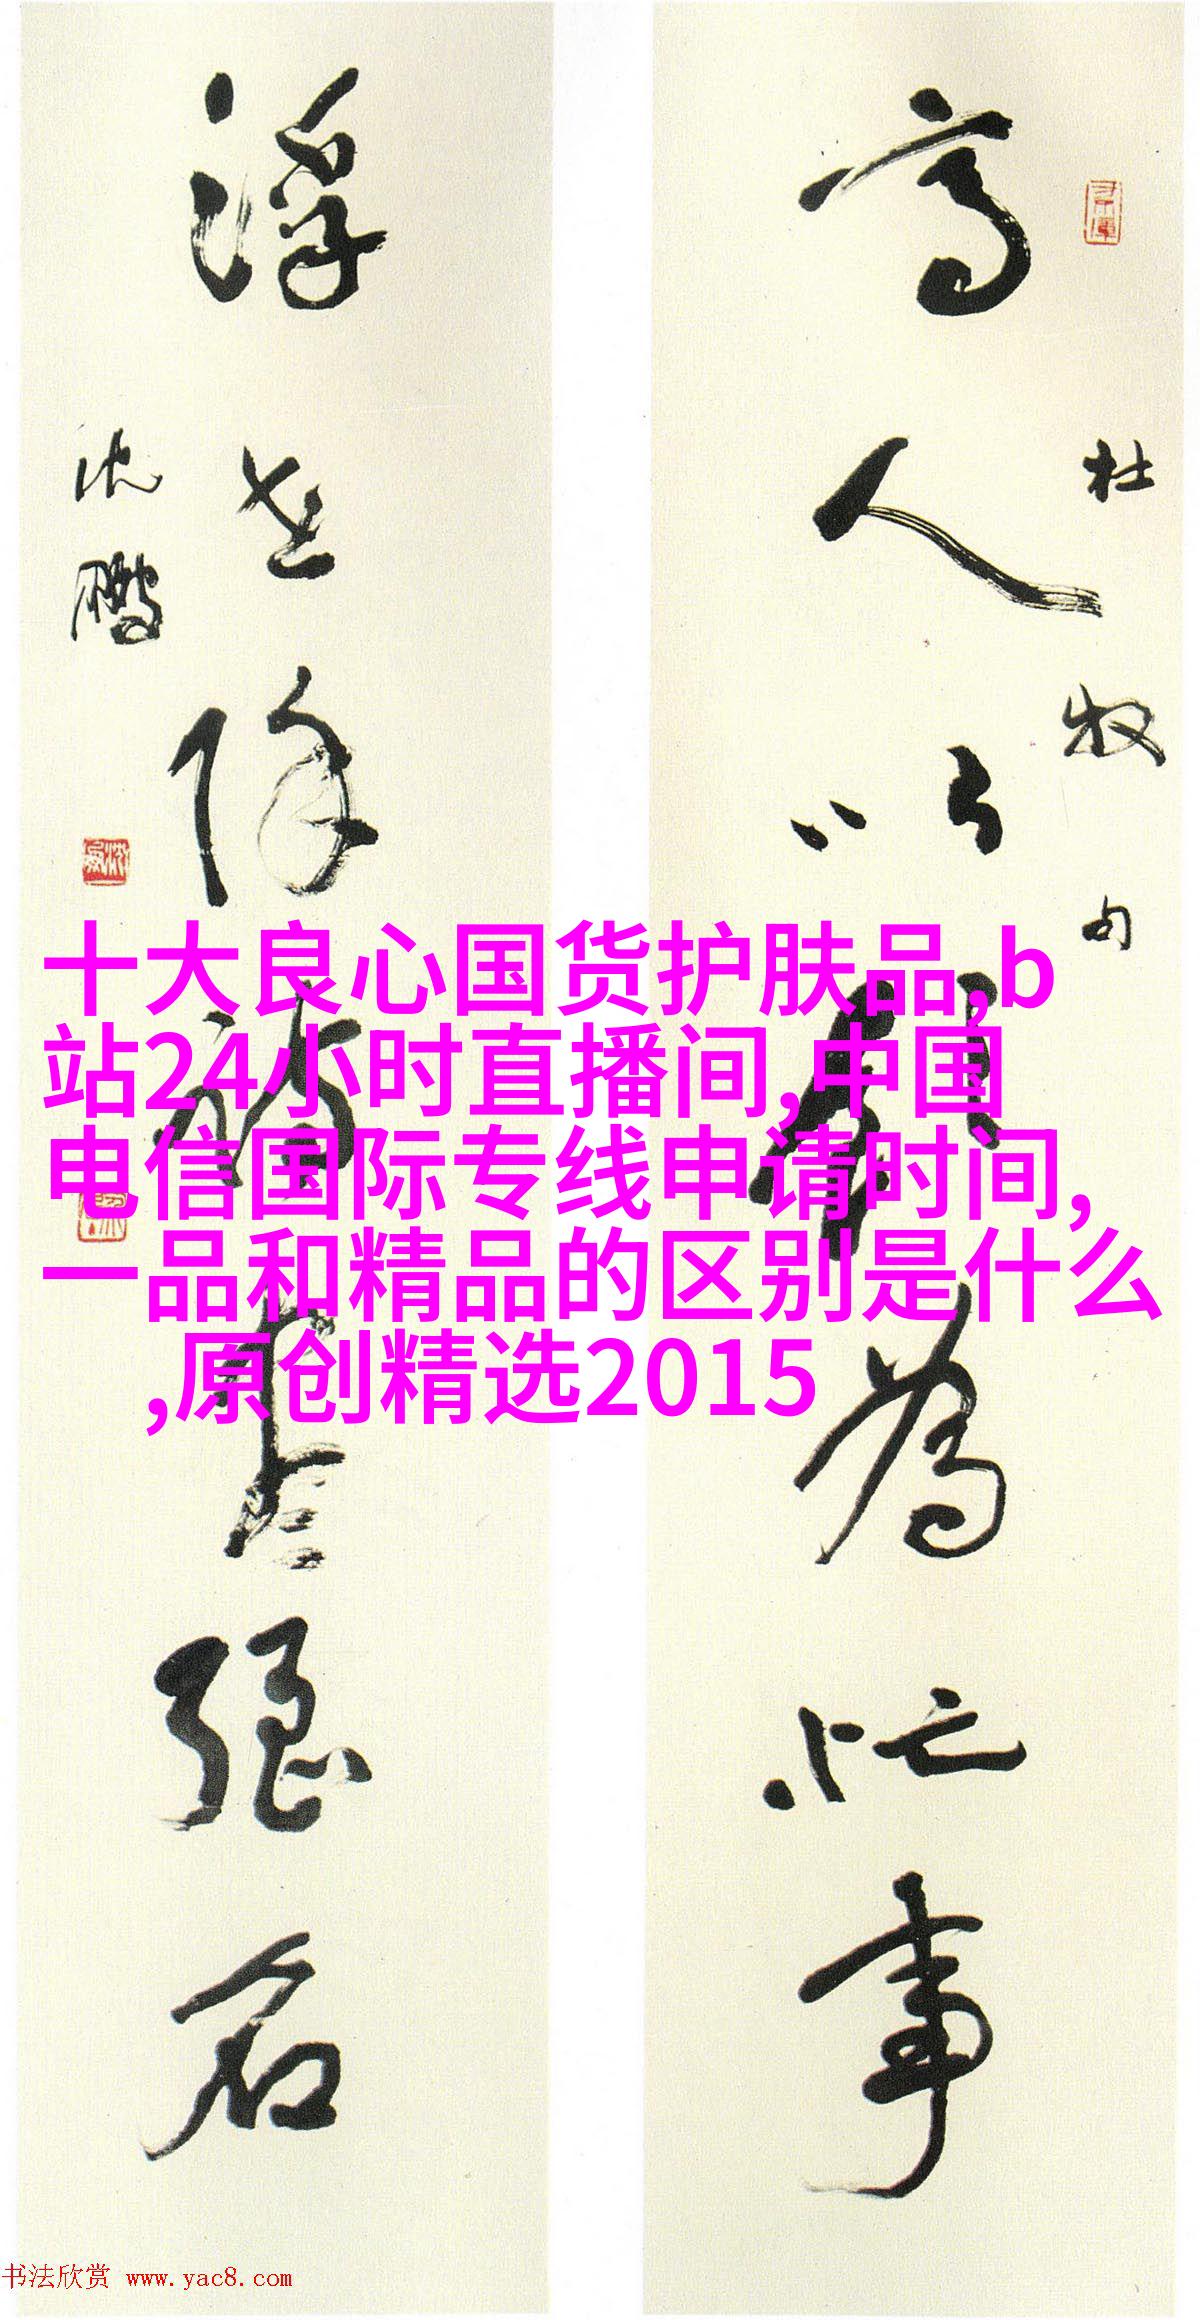 高人以飲為忙事
杜牧句
浮世除詩盡強名
沈鹏
十大良心国货护肤品,b
站24小时直播间,中国
电信国际专线申请时间,
一品和精品的区别是什么
,原创精选2015
书法欣赏 www.yac8.com